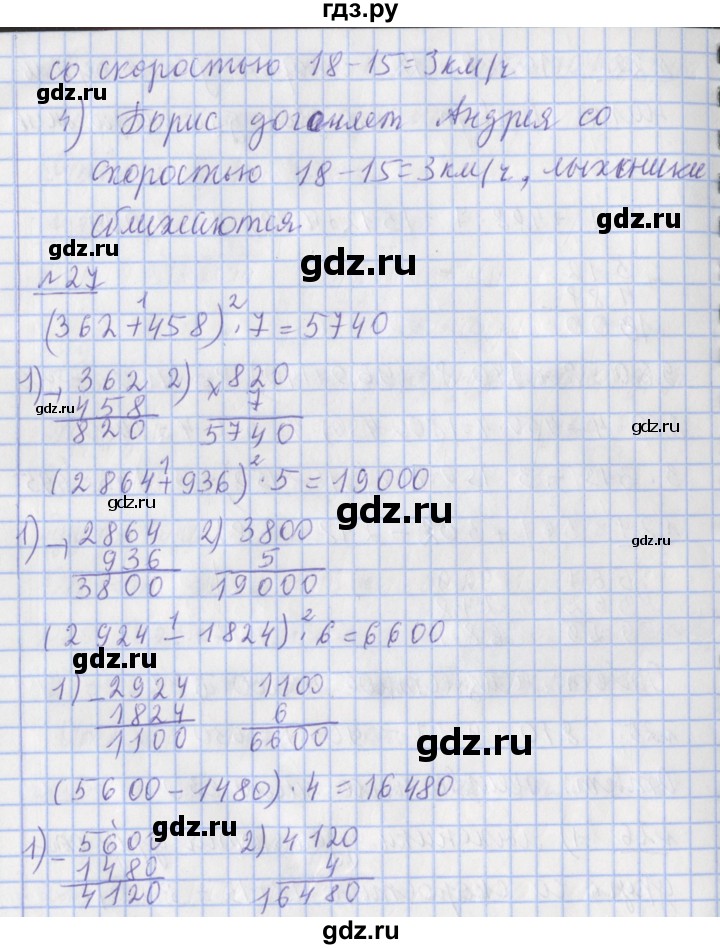 гдз.ру
со скоростью 18-15=3км/ч
4) Борис догоняет Андрея со
скоростью 18-15=3км/ч, лыжники
сближаются.
gdz.ru
gdz.ru
gdz.ru
№27
1 2
(362+458)·7=5740
1) + 362 2) × 820
gdz.ru
458 7
820 5740
gdz.ru
1 2
(2864+936)·5=19000
gdz.ru
gdz.ru
1) + 2864 2) 3800
gdz.ru
936 5
3800 19000
1 2
(2924-1824)·6=6600
gdz.ru
1) - 2924 1100
1824 6
1100 6600
gdz.ru
(5600-1480)·4=16480
gdz.ru
1) - 5600 2) 4120
1480 4
4120 16480
gdz.ru
gdz.ru